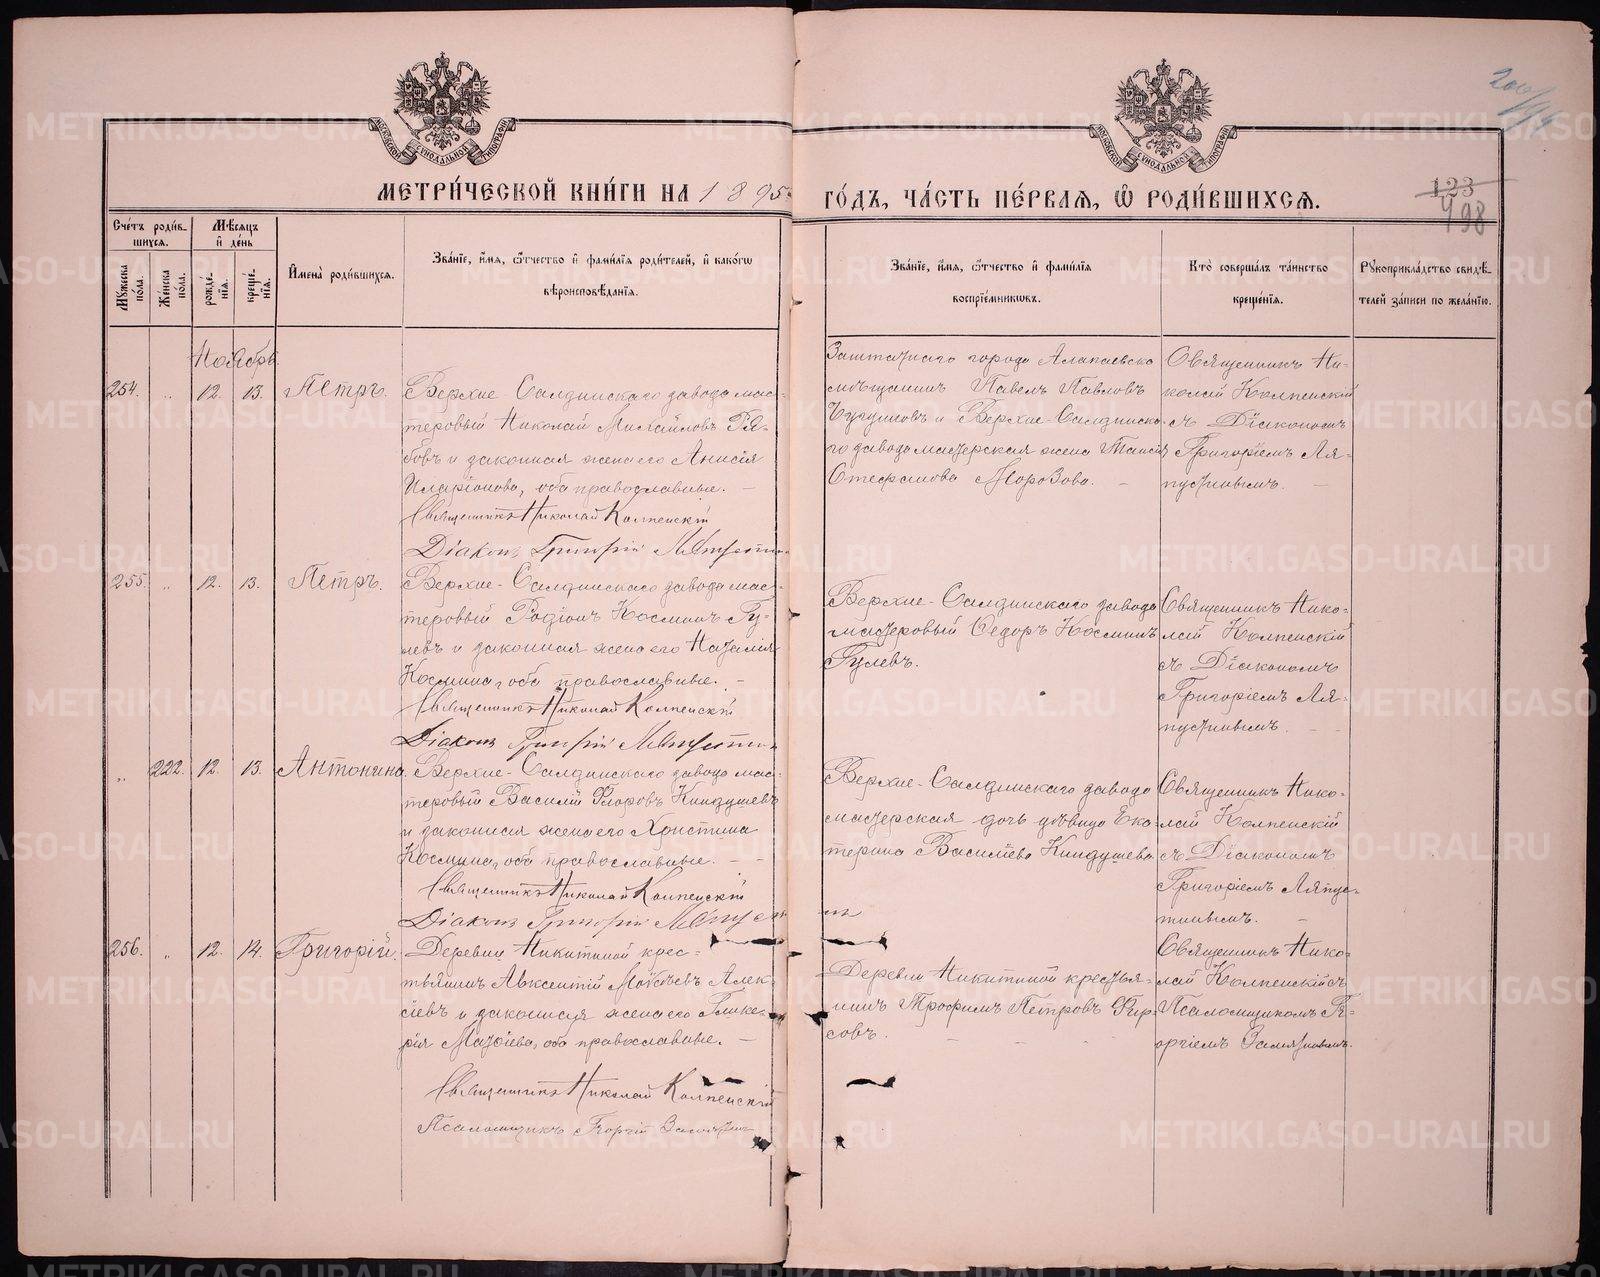 МЕТРИ́ЧЕСКОЙ КНИ́ГИ НА 1895
ГО́ДЪ, ЧА́СТЬ ПЕ́РВАѦ, Ѡ҆ РОДИ́ВШИХСѦ.
123
498
Сче́тъ роди́в-
шихся.
Мѣ́сяцъ
и҆ де́нь
Мꙋ́жеска
по́ла.
Же́нска
по́ла.
рожде́-
нїя.
креще́-
нїя.
И҆мена̀ роди́вшихся.
Зва́нїе, и҆́мя, ѻ҆́тчество и҆ фами́лїя роди́телей, и҆ како́гѡ
вѣроисповѣ́данїя.
Зва́нїе, и҆́мя, ѻ҆́тчество и҆ фами́лїя
воспрїе́мниковъ.
Кто̀ соверша́лъ та́инство
креще́нїя.
Рꙋкоприкла́дство свидѣ́-
телей за́писи по жела́нїю.
Ноябрь
254. „ 12. 13. Петръ.
Верхне-Салдинскаго завода мас-
теровый Николай Михайловъ Ря-
бовъ и законная жена его Анисія
Иларіонова, оба православные.
Священникъ Николай Колпенскій
Діаконъ Григорій
Заштатнаго города Алапаевска
мѣщанинъ Павелъ Павловъ
и Верхне-Салдинска-
го завода мастерская жена Таисія
Стефанова Морозова.
Священникъ Ни-
колай Колпенскій
съ Діакономъ
Григоріемъ Ля-
пустинымъ.
255. „ 12. 13. Петръ.
Верхне-Салдинскаго завода мас-
теровый Родіонъ Косминъ Гу-
левъ и законная жена его Наталія
Космина, оба православные.
Священникъ Николай Колпенскій
Діаконъ Григорій
Верхне-Салдинскаго завода
мастеровый Ѳедоръ Косминъ
Гулевъ.
Священникъ Нико-
лай Колпенскій
съ Діакономъ
Григоріемъ Ля-
пустинымъ.
„ 222. 12. 13. Антонина.
Верхне-Салдинскаго завода мас-
теровый Василій Флоровъ Киндушевъ
и законная жена его Христина
Космина, оба православные.
Священникъ Николай Колпенскій
Діаконъ Григорій
Верхне-Салдинскаго завода
мастерская дочь дѣвица Ека-
терина Васильева Киндушева
Священникъ Нико-
лай Колпенскій
съ Діакономъ
Григоріемъ Ляпус-
тинымъ.
256. „ 12. 14. Григорій.
Деревни Никитиной крес-
тьянинъ Авксентій Алек-
сіевъ и законная жена его Глике-
рія Матѳіева, оба православные.
Священникъ Николай Колпенскій
Псаломщикъ Георгій
Деревни Никитиной крестья-
нинъ Трофимъ Петровъ Фир-
совъ.
Священникъ Нико-
лай Колпенскій съ
Псаломщикомъ Ге-
оргіемъ